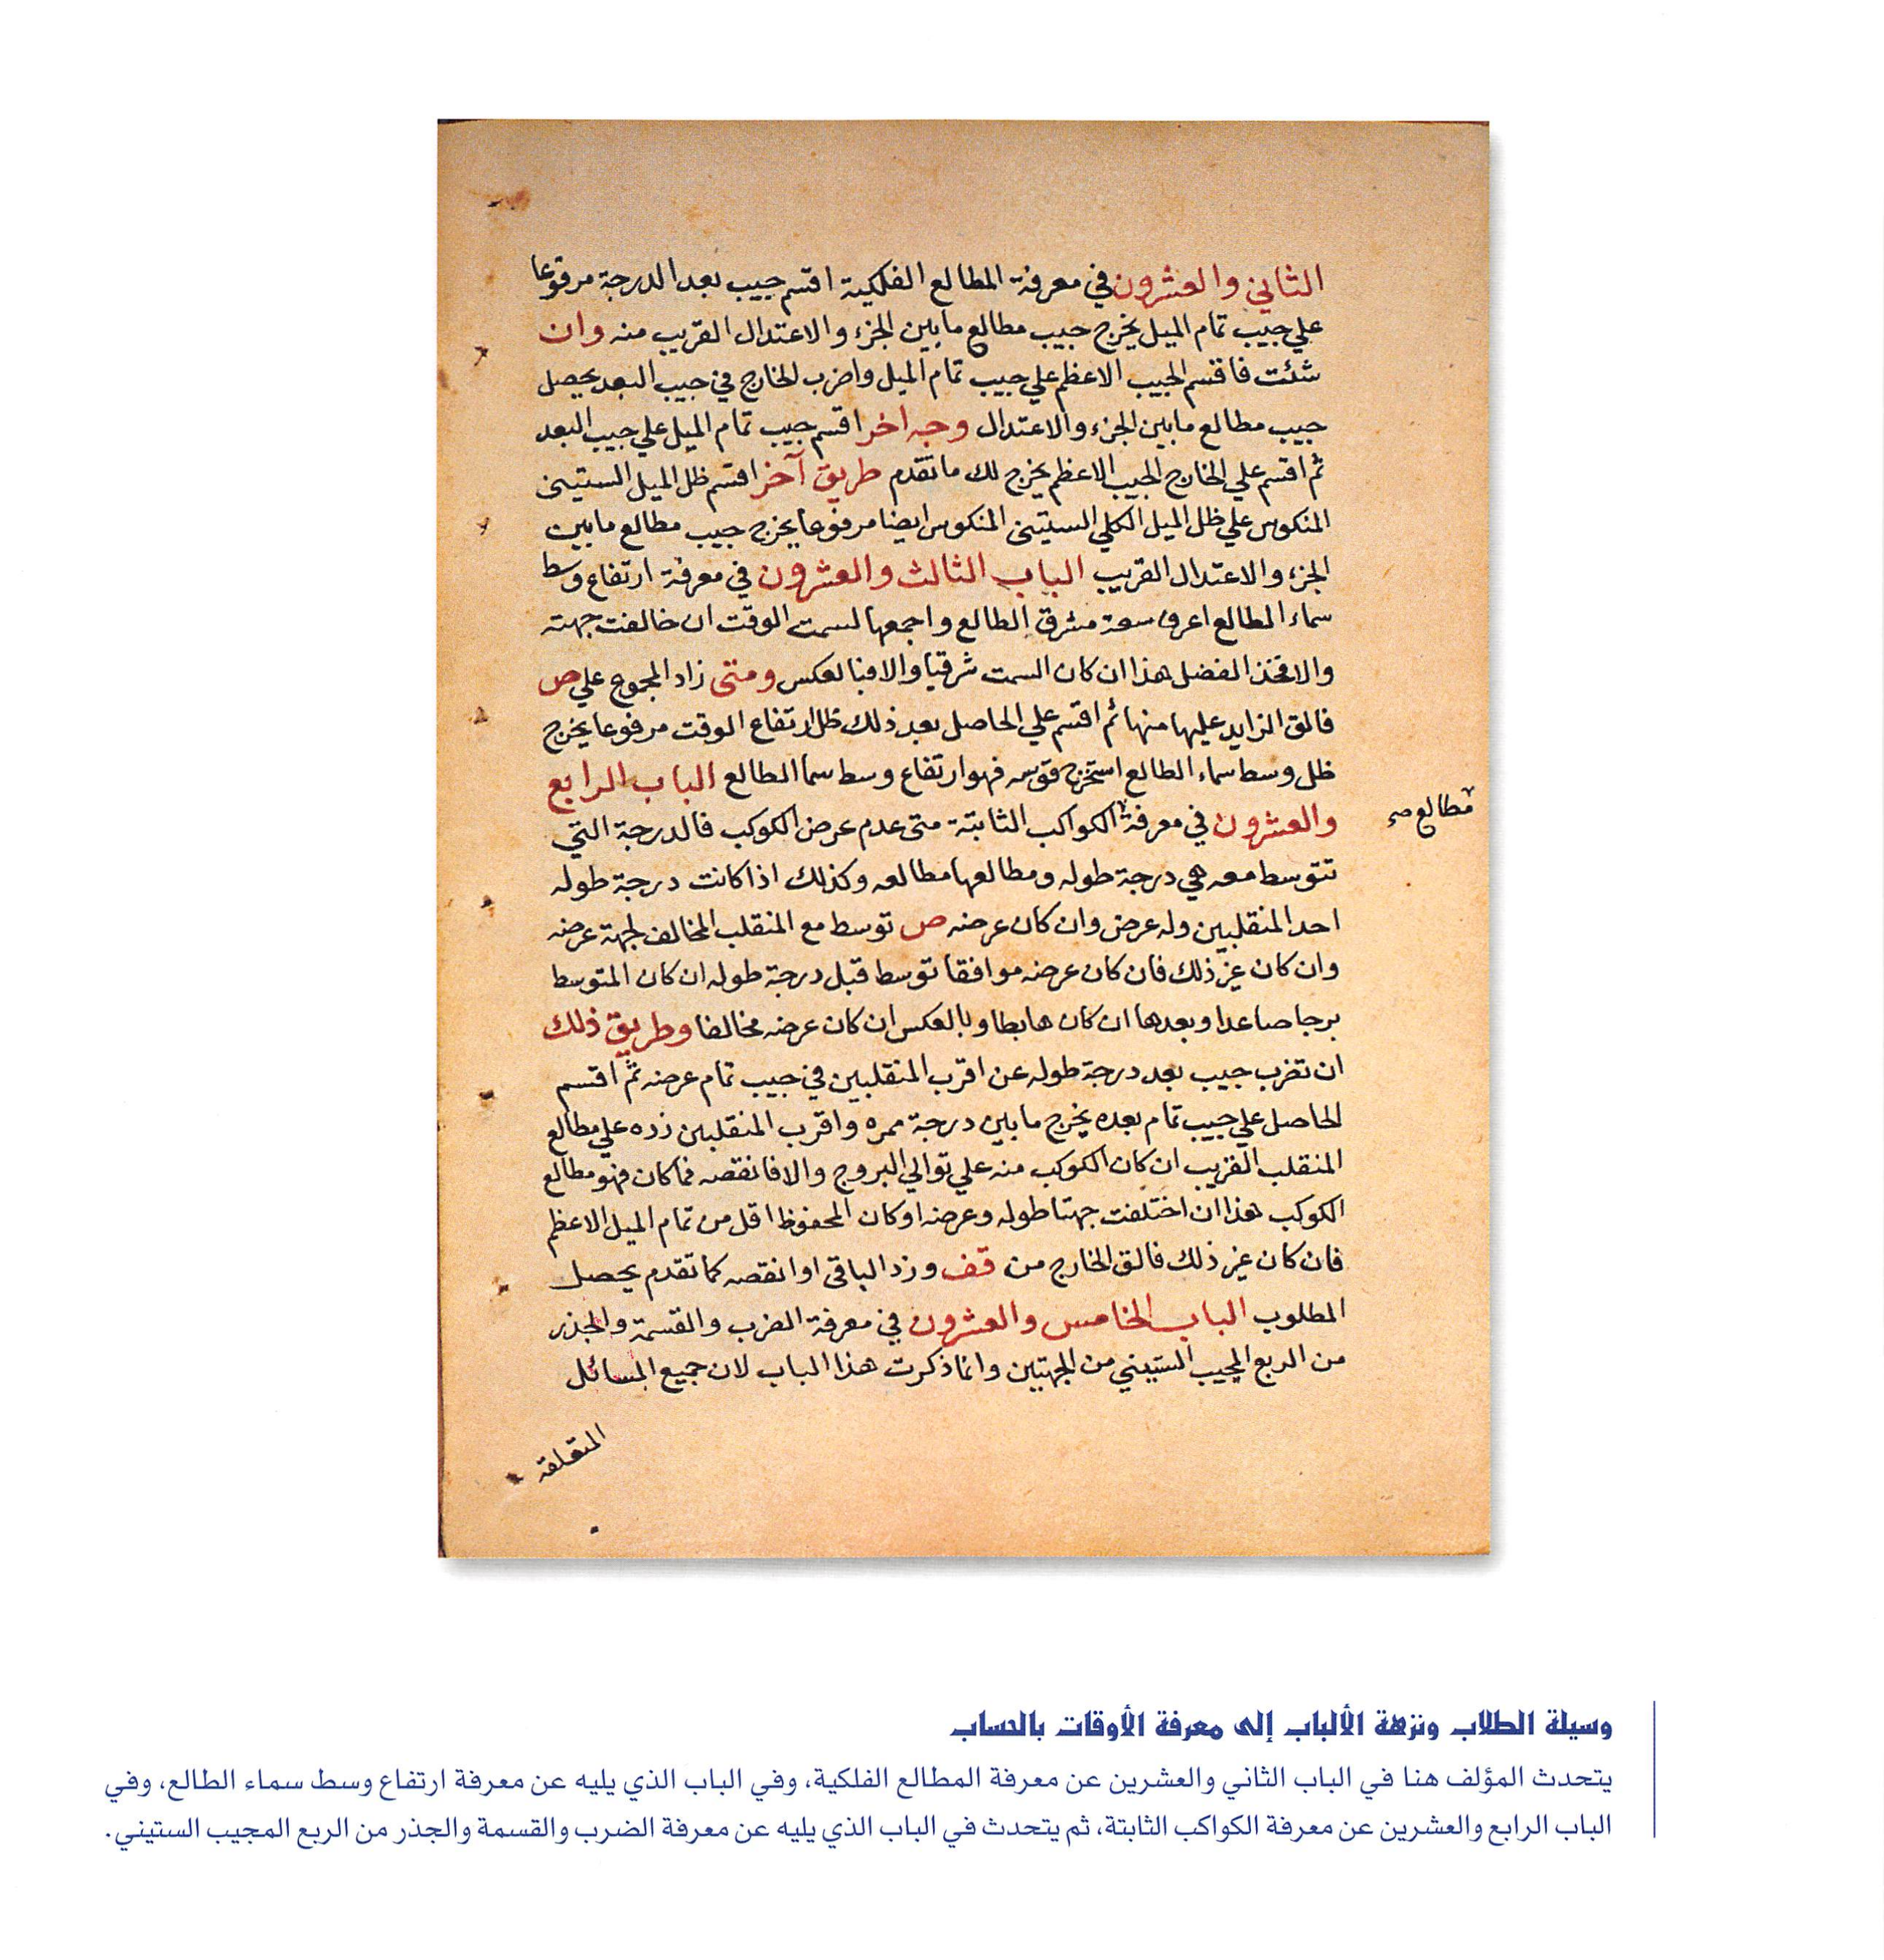 الثاني والعشرون في معرفة المطالع الفلكية اقسم جيب بعد الدرجة مرفوعا
علي جيب تمام الميل يخرج جيب مطالع ما بين الجزء والاعتدال القريب منه وان
شئت فاقسم الجيب الاعظم علي جيب تمام الميل واضرب الخارج في جيب البعد يحصل
جيب مطالع ما بين الجزء والاعتدال وجه اخر اقسم جيب تمام الميل علي جيب البعد
ثم اقسم علي الخارج الجيب الاعظم يخرج لك ما تقدم طريق آخر اقسم ظل الميل الستيني
المنكوس علي ظل الميل الكلي الستيني المنكوس ايضا مرفوعا يخرج جيب مطالع ما بين
الجزء والاعتدال القريب الباب الثالث والعشرون في معرفة ارتفاع وسط
سماء الطالع اعرف سعة مشرق الطالع واجمعها لسمت الوقت ان خالفت جهته
والا فخذ الفضل هذا ان كان السمت شرقيا والا فبالعكس ومتى زاد المجموع علي ص
فالق الزايد عليها منها ثم اقسم علي الحاصل بعد ذلك ظل ارتفاع الوقت مرفوعا يخرج
ظل وسط سماء الطالع استخرج قوسه فهو ارتفاع وسط سما الطالع الباب الرابع
والعشرون في معرفة الكواكب الثابتة متى عدم عرض الكوكب فالدرجة التي
مطالع صح
تتوسط معه هي درجة طوله ومطالعها مطالعه وكذلك اذا كانت درجة طوله
احد المنقلبين وله عرض وان كان عرضه ص توسط مع المنقلب المخالف لجهة عرضه
وان كان غير ذلك فان كان عرضه موافقا توسط قبل درجة طوله ان كان المتوسط
برجا صاعدا وبعدها ان كان هابطا وبالعكس ان كان عرضه مخالفا وطريق ذلك
ان تضرب جيب بعد درجة طوله عن اقرب المنقلبين في جيب تمام عرضه ثم اقسم
الحاصل علي جيب تمام بعده يخرج ما بين درجة ممره واقرب المنقلبين زده علي مطالع
المنقلب القريب ان كان الكوكب منه علي توالي البروج والا فانقصه فما كان فهو مطالع
الكوكب هذا ان اختلفت جهتا طوله وعرضه او كان المحفوظ اقل من تمام الميل الاعظم
فان كان غير ذلك فالق الخارج من قف وزد الباقي او انقصه كما تقدم يحصل
المطلوب الباب الخامس والعشرون في معرفة الضرب والقسمة والجذر
من الربع المجيب الستيني من الجهتين وانما ذكرت هذا الباب لان جميع المسائل
المتعلقة
وسيلة الطلاب ونزهة الألباب إلى معرفة الأوقات بالحساب
يتحدث المؤلف هنا في الباب الثاني والعشرين عن معرفة المطالع الفلكية، وفي الباب الذي يليه عن معرفة ارتفاع وسط سماء الطالع، وفي
الباب الرابع والعشرين عن معرفة الكواكب الثابتة، ثم يتحدث في الباب الذي يليه عن معرفة الضرب والقسمة والجذر من الربع المجيب الستيني.